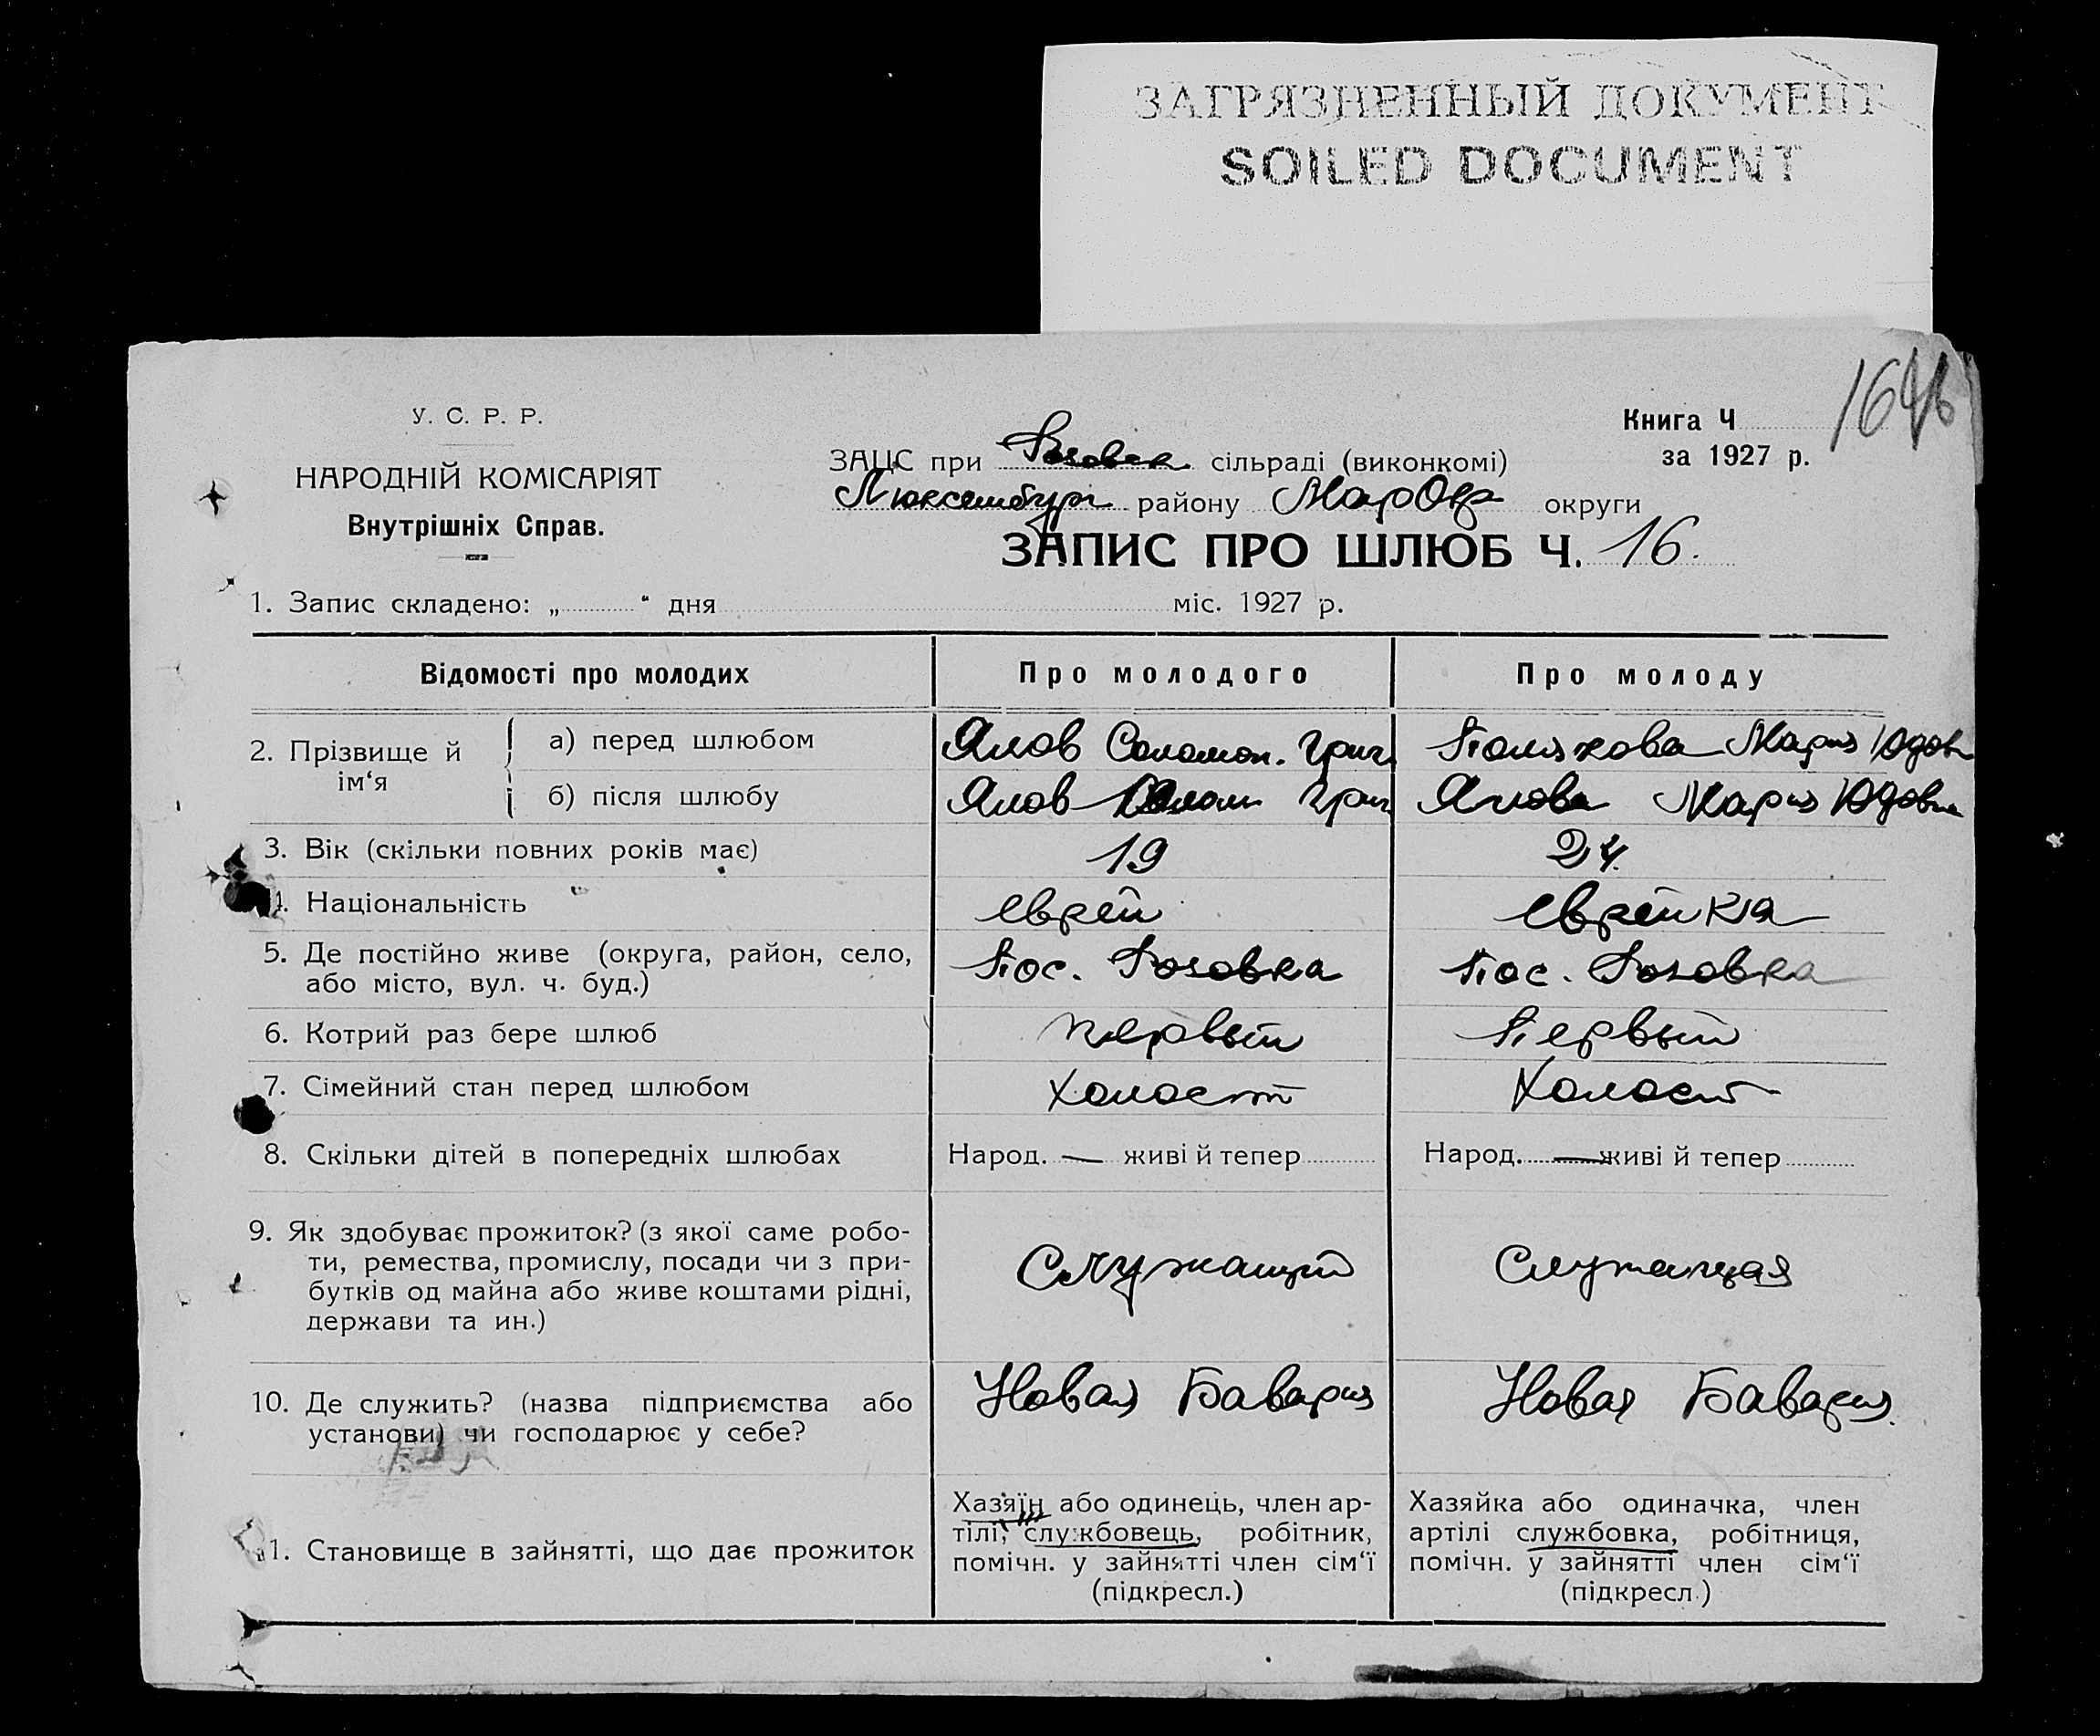 ЗАГРЯЗНЕННЫЙ ДОКУМЕНТ
SOILED DOCUMENT
У. С. Р. Р.
НАРОДНІЙ КОМІСАРІЯТ
Внутрішніх Справ.
Книга Ч
за 1927 р.
ЗАЦС при Розовск. сільраді (виконкомі)
Люксембург району МарОкр округи
ЗАПИС ПРО ШЛЮБ Ч. 16.
1. Запис складено: „ “ дня міс. 1927 р.
Відомості про молодих Про молодого Про молоду
2. Прізвище й ім‘я
а) перед шлюбом Ялов Соломон. Григ. Полякова Мария Юдовн
б) після шлюбу Ялов Солом Григ Ялова Мария Юдовна
3. Вік (скільки повних років має) 19 24
4. Національність еврей еврейка
5. Де постійно живе (округа, район, село, Пос. Розовка Пос. Розовка
або місто, вул. ч. буд.)
6. Котрий раз бере шлюб первый Первый
7. Сімейний стан перед шлюбом холост Холост
8. Скільки дітей в попередніх шлюбах Народ. — живі й тепер Народ. — живі й тепер
9. Як здобуває прожиток? (з якої саме робо-
ти, ремества, промислу, посади чи з при- Служащий Служащая
бутків од майна або живе коштами рідні,
держави та ин.)
10. Де служить? (назва підприємства або Новая Бавария Новая Бавария.
установи) чи господарює у себе?
11. Становище в зайнятті, що дає прожиток
Хазяїн або одинець, член ар-
тілі, службовець, робітник,
помічн. у зайнятті член сім‘ї
(підкресл.)
Хазяйка або одиначка, член
артілі службовка, робітниця,
помічн. у зайнятті член сім‘ї
(підкресл.)